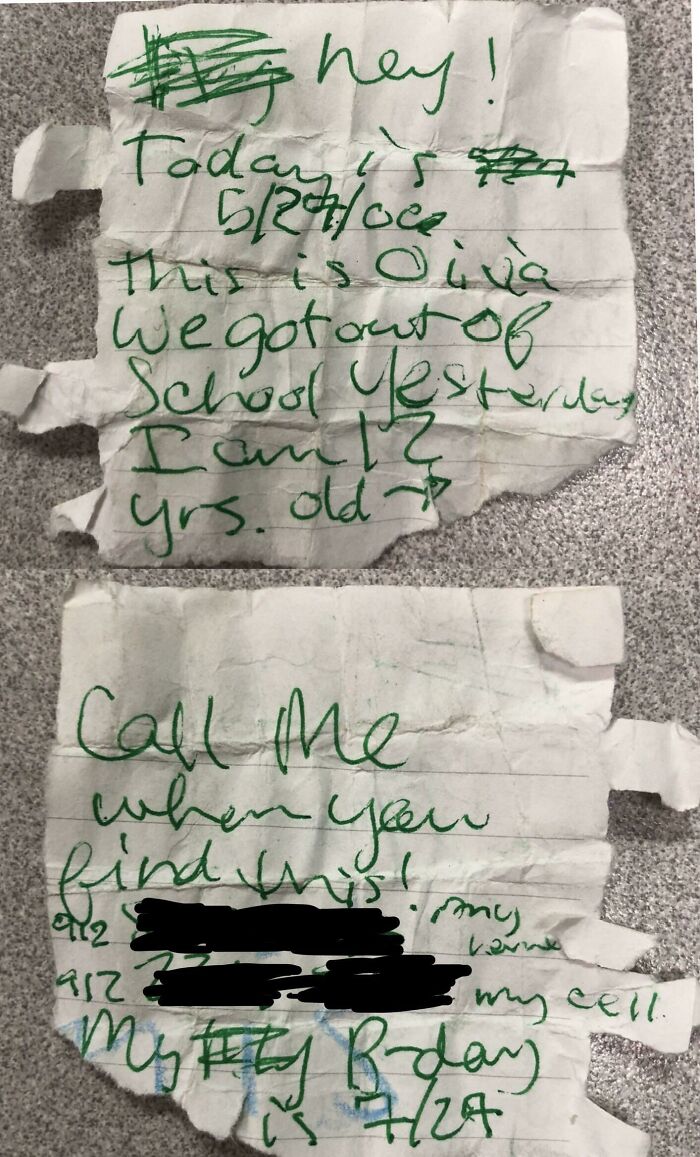 hey!
Today is
5/27/00
This is Olivia
We got out of
School Yesterday
I am 12
yrs. old →
Call Me
when you
find this!
912
912 my cell
My B-day
is 7/27